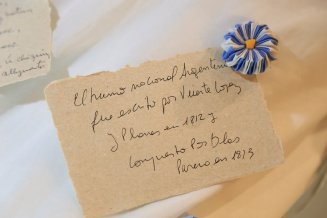 El himno nacional Argentino
fue escrito por Vicente Lopez
y Planes en 1812 y
compuesto Por Blas
Parera en 1813